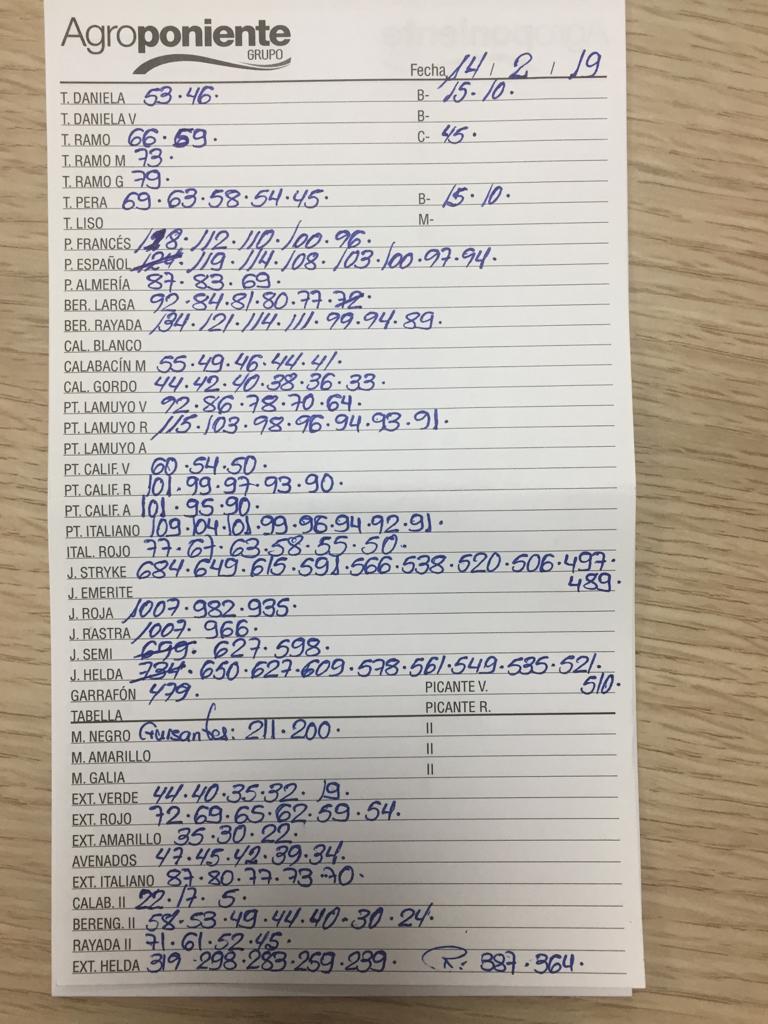 Agroponiente
GRUPO
Fecha 14 / 2 / 19
T. DANIELA 53·46· B- 15·10·
T. DANIELA V B-
T. RAMO 66·59· C- 45·
T. RAMO M 73·
T. RAMO G 79·
T. PERA 69·63·58·54·45· B- 15·10·
T. LISO M-
P. FRANCÉS 128·112·110·100·96·
P. ESPAÑOL 124·119·114·108·103·100·97·94·
P. ALMERÍA 87·83·69·
BER. LARGA 92·84·81·80·77·72·
BER. RAYADA 134·121·114·111·99·94·89·
CAL. BLANCO
CALABACÍN M 55·49·46·44·41·
CAL. GORDO 44·42·40·38·36·33·
PT. LAMUYO V 92·86·78·70·64·
PT. LAMUYO R 115·103·98·96·94·93·91·
PT. LAMUYO A
PT. CALIF. V 60·54·50·
PT. CALIF. R 101·99·97·93·90·
PT. CALIF. A 101·95·90·
PT. ITALIANO 109·104·101·99·96·94·92·91·
ITAL. ROJO 77·67·63·58·55·50·
J. STRYKE 684·649·615·591·566·538·520·506·497·
J. EMERITE 489·
J. ROJA 1007·982·935·
J. RASTRA 1007·966·
J. SEMI 699·627·598·
J. HELDA 734·650·627·609·578·561·549·535·521·
GARRAFÓN 479· PICANTE V. 510·
TABELLA PICANTE R.
M. NEGRO Guisantes: 211·200· II
M. AMARILLO II
M. GALIA II
EXT. VERDE 44·40·35·32·19·
EXT. ROJO 72·69·65·62·59·54·
EXT. AMARILLO 35·30·22·
AVENADOS 47·45·42·39·34·
EXT. ITALIANO 87·80·77·73·70·
CALAB. II 22·17·5·
BERENG. II 58·53·49·44·40·30·24·
RAYADA II 71·61·52·45·
EXT. HELDA 319·298·283·259·239· R: 387·364·